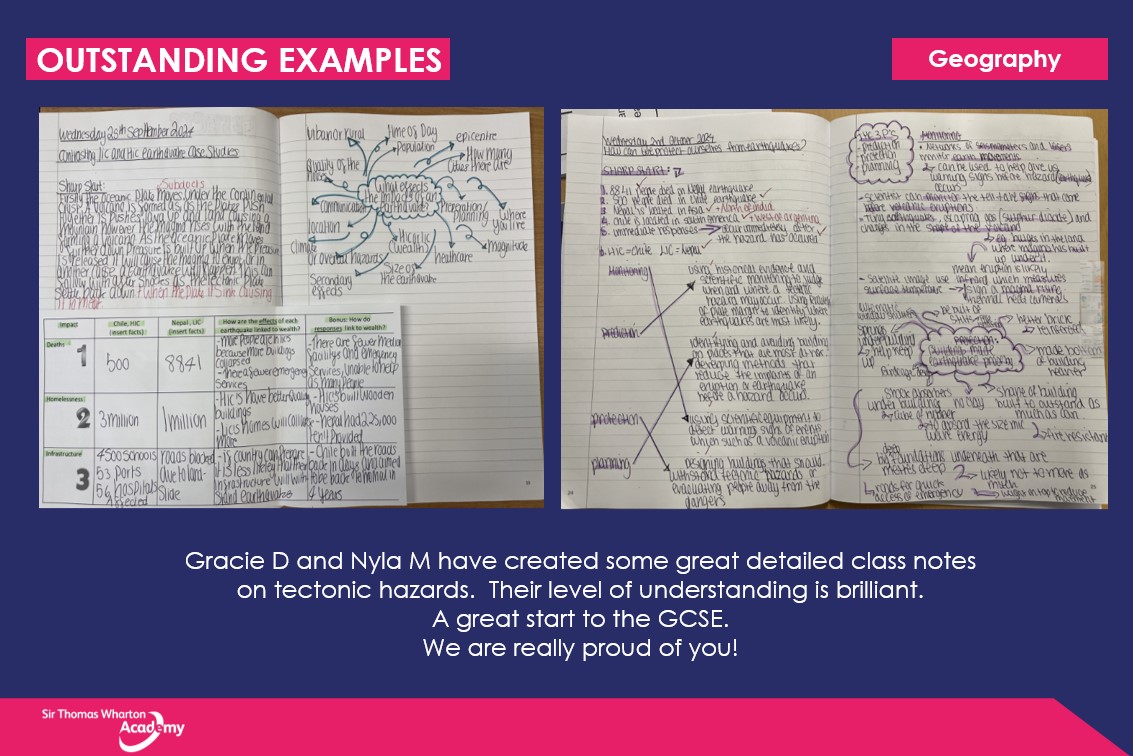 OUTSTANDING EXAMPLES
Geography
Wednesday 25th September 2024
Contrasting Lic and Hic earthquake Case Studies
Sharp Start:
Subducts
Firstly the Oceanic Plate Moves under the Continental
Crust. A Volcano is formed as as the plates Push
together is pushes
mountain however the magma rises with the land
forming a volcano. As the oceanic plate moves
further down Pressure is built up when the Pressure
is released it will cause the magma to erupt or in
another case a earthquake will happen. This can
follow with after Shocks as the tectonic Plate
Urban or rural
time of Day
Population
epicentre
How many
other there are
Quality of the
communication
location
Climate
Or overall hazards
Secondary
effects
What effects
the impacts of an
earthquake
Hic or lic
(wealth)
Size of the
earthquake
healthcare
Preparation/
Planning
Where
you live
Magnitude
Impact
Chile, HIC
(insert facts)
Nepal, LIC
(insert facts)
How are the effects of each
earthquake linked to wealth?
Bonus: How do
responses link to wealth?
Deaths
1
500
8841
-more People die in lics
because more buildings
collapsed
-there are fewer medical
facilitys and emergency
Services, unable to help
as many People
Homelessness
2
3 million
1 million
-Hic's have better quality
buildings
-Hic's built wooden
houses
-nepal had 225,000
tents Provided
Infrastructure
3
4500 Schools
53 ports
56 hospitals
effected
roads blocked
due to land-
Slide
-Chile built the roads
back in days and aimed
to be back to normal in
4 years
Wednesday 2nd October 2024
How can we protect ourselves from earthquakes?
SHARP START:
1. 8841 people died in Nepal earthquake
2. 500 people died in Chile earthquake
3. Nepal is located in Asia
+North of india
4. Chile is located in south america
+West of argentina
5. immediate responses
occur immediatley after
the hazard has occured
6. HIC = Chile LIC = Nepal
Monitoring
prediction
protection
planning
using historical evidence and
scientific monitoring to judge
when and where a tectonic
hazard may occur. Using knowledge
of plate margins to identify where
earthquakes are most likely.
identifying and avoiding building
on places that are most at risk.
developing methods that
reduce the impacts of an
eruption or earthquake
before a hazard occurs.
using scientific equipment to
detect warning signs of events
which such as a volcanic eruption
designing building that should
withstand tectonic hazards or
evacuating people away from the
dangers
the 3 P's
- prediction
- protection
- planning
Monitoring
- can be used to help give us
warning signs before hazard
occurs
- Scientist can monitor the tell tale signs that
- tiny earthquakes, escaping gas (sulphur dioxide) and
changes in the shape of the volcano
eg bulges in the land
where magma has built
up under it.
mean eruption is likely
- Satellite image use infrared which measures
surface temperature
thermal heat cameras
protection:
made bottom
of building
heavier
Shock absorbers
under building
to absorb the seismic
wave energy
Shape of building
built to outstand as
much as can
fire resistant
deep
big foundations underneath that are
metres deep
likely not to move as
much
roads for quick
access of emergency
Gracie D and Nyla M have created some great detailed class notes
on tectonic hazards. Their level of understanding is brilliant.
A great start to the GCSE.
We are really proud of you!
Sir Thomas Wharton
Academy